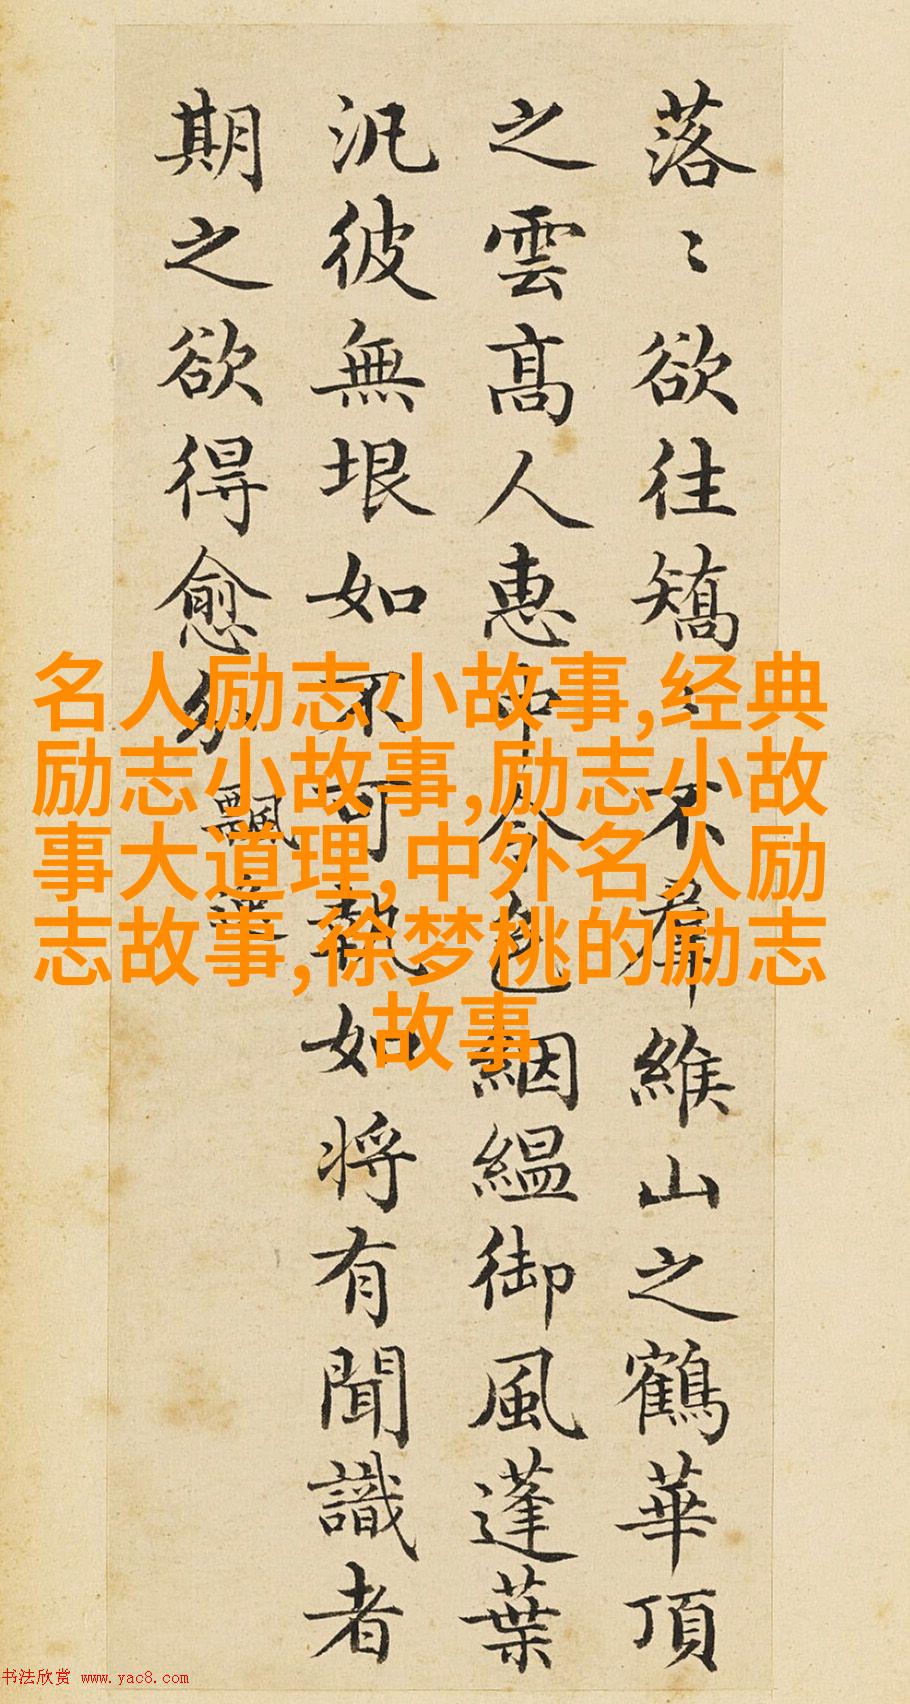 落〻欲往矯〻不羣緱山之鶴華頂
之雲高人惠中令色絪緼御風蓬葉
汎彼無垠如不可執如將有聞識者
期之欲得愈分飄逸
名人励志小故事,经典
励志小故事,励志小故
事大道理,中外名人励
志故事,徐梦桃的励志
故事
书法欣赏 www.yac8.com